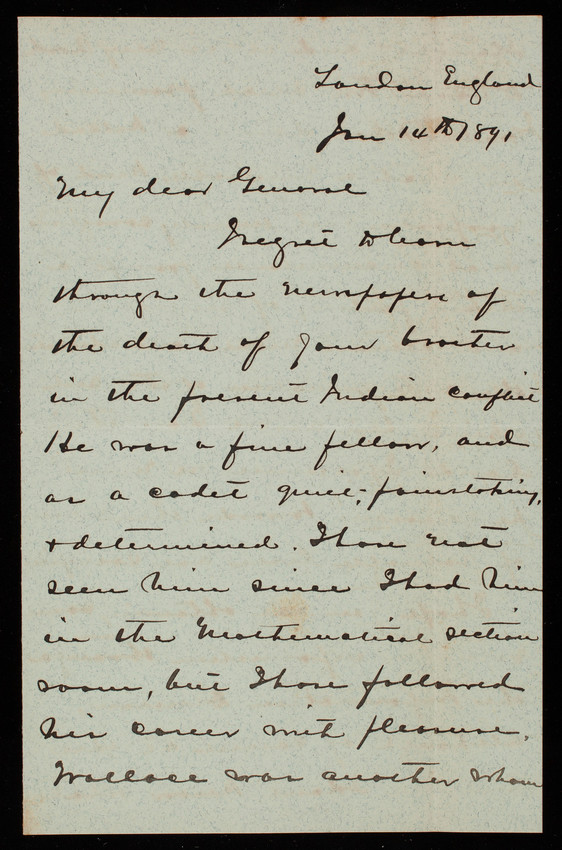 London England
Jan 14th 1891
My dear General
I regret to learn
through the newspapers of
the death of your brother
in the present Indian conflict
He was a fine fellow, and
as a cadet quiet, painstaking,
& determined. I have not
seen him since I had him
in the Mathematical section
room, but I have followed
his career with pleasure.
Wallace was another whom